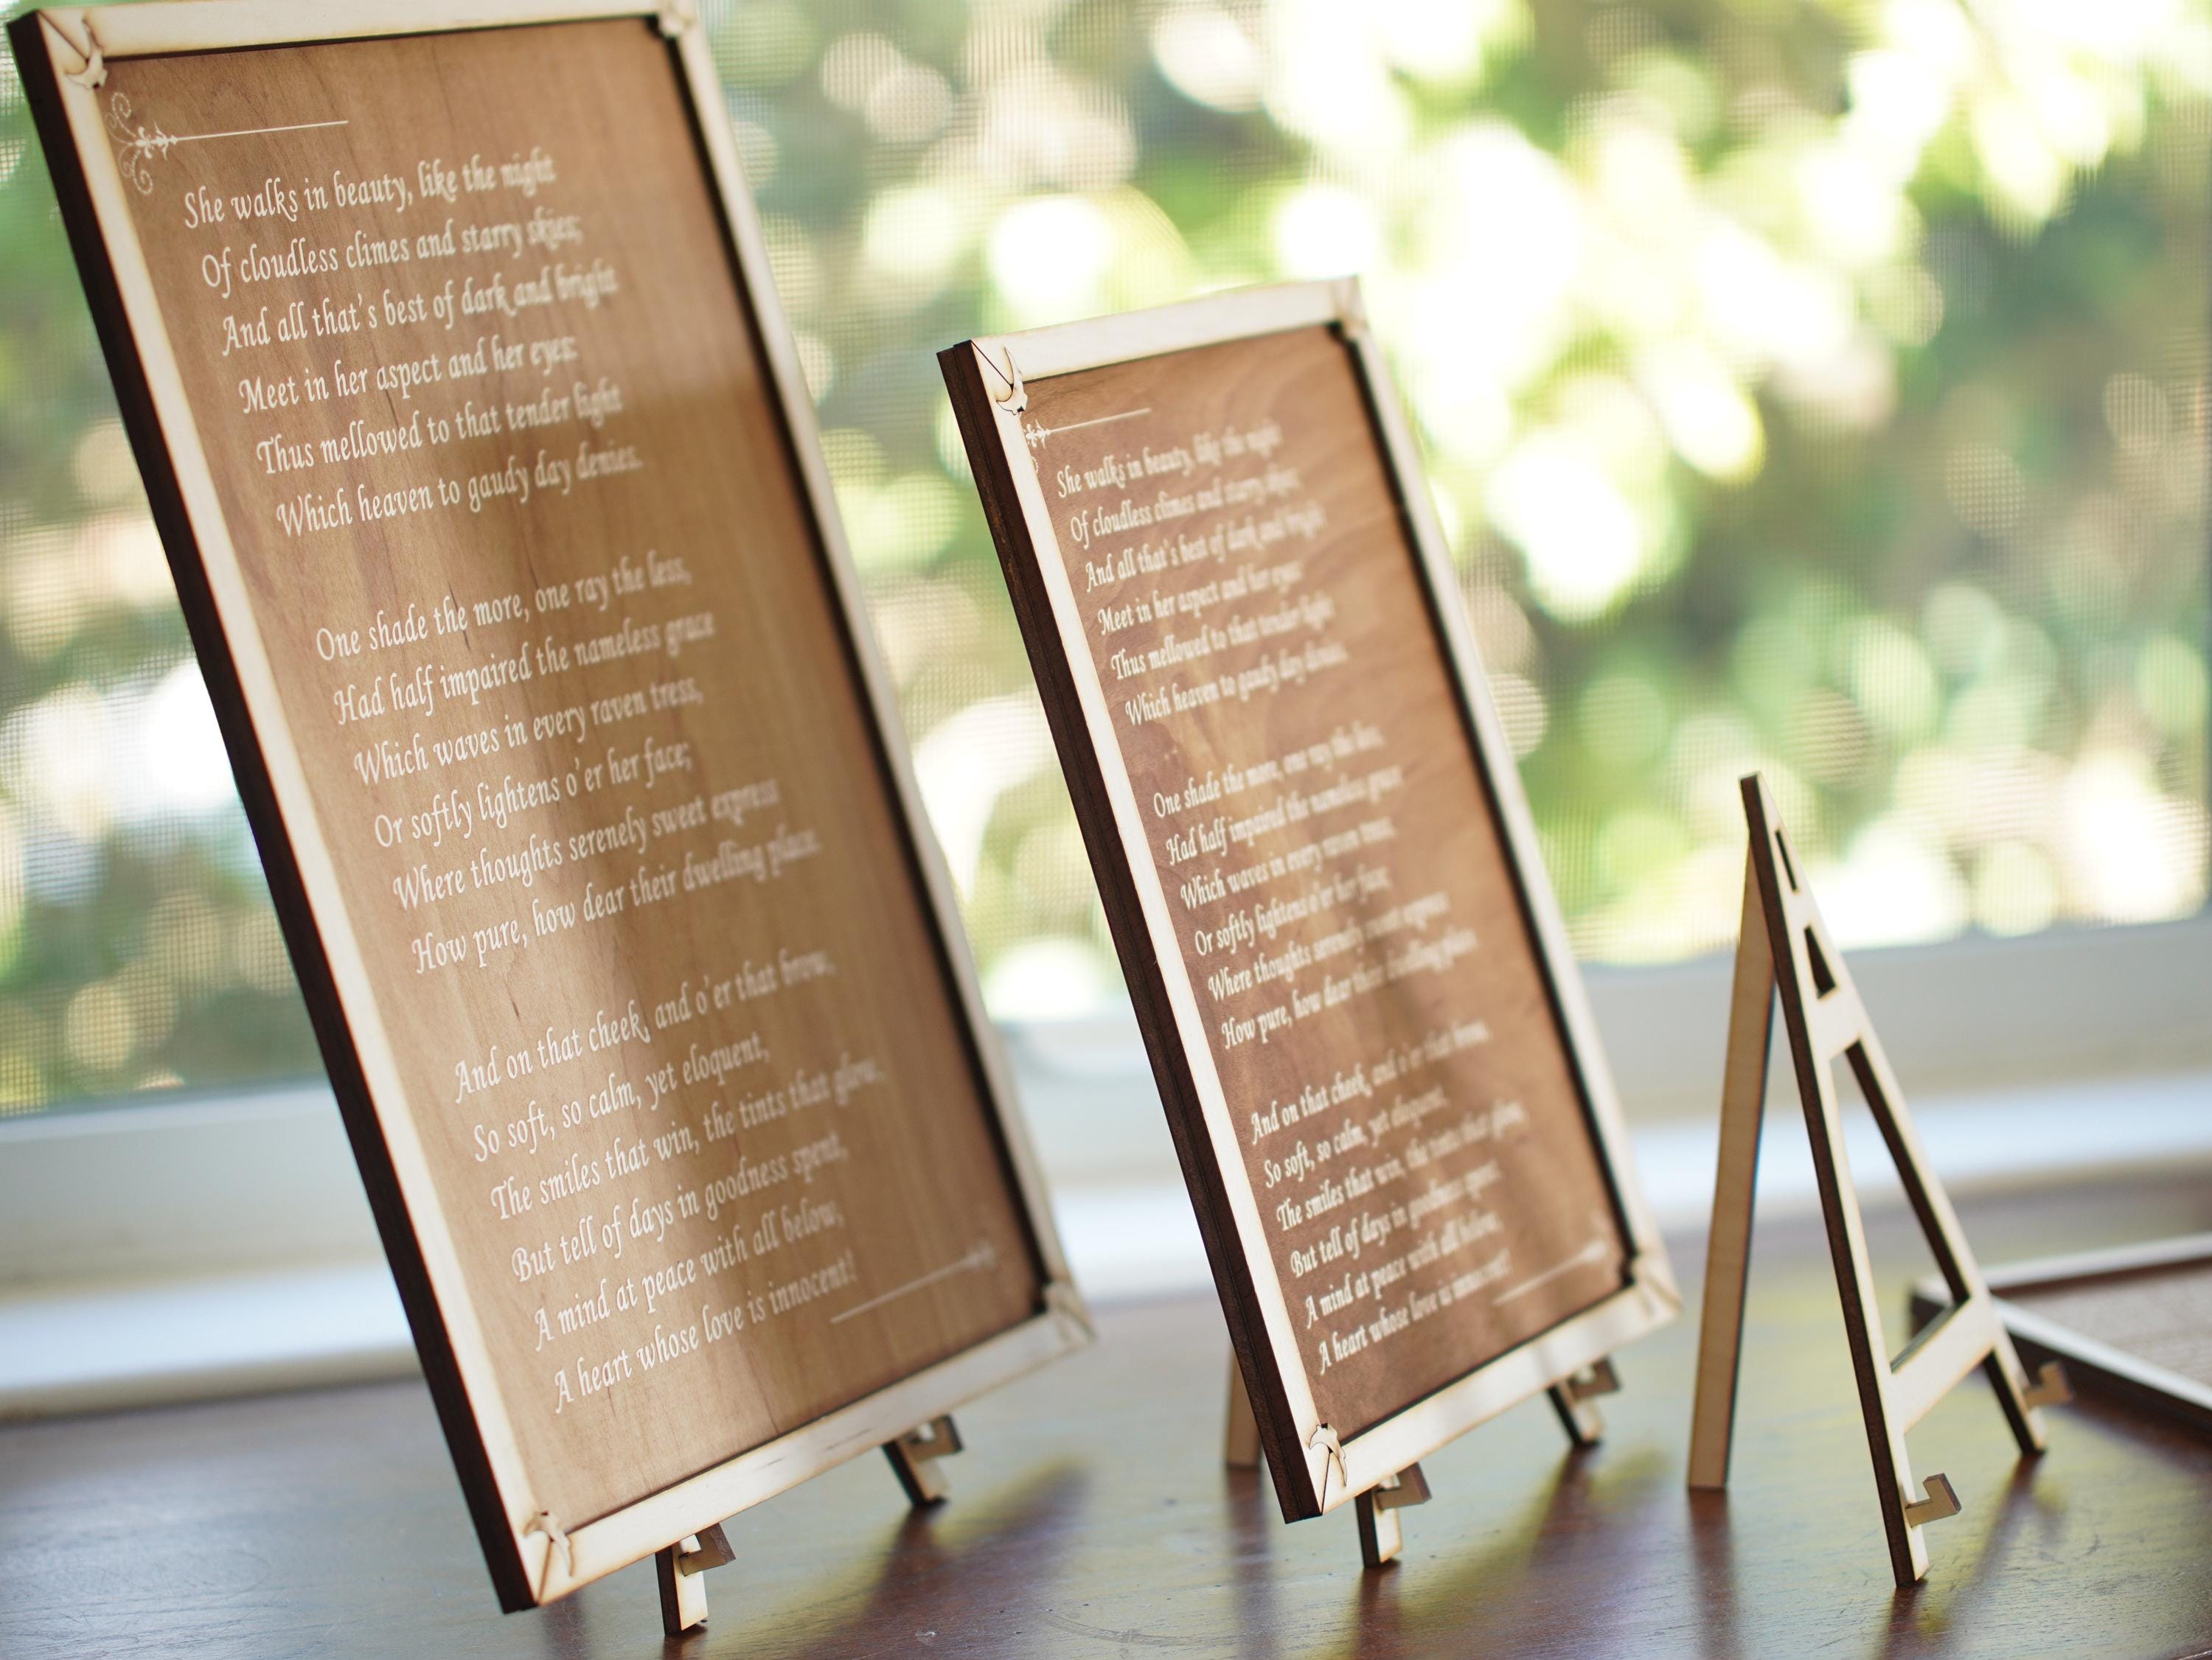 She walks in beauty, like the night
Of cloudless climes and starry skies;
And all that's best of dark and bright
Meet in her aspect and her eyes:
Thus mellowed to that tender light
Which heaven to gaudy day denies.
One shade the more, one ray the less,
Had half impaired the nameless grace
Which waves in every raven tress,
Or softly lightens o'er her face;
Where thoughts serenely sweet express
How pure, how dear their dwelling place.
And on that cheek, and o'er that brow,
So soft, so calm, yet eloquent,
The smiles that win, the tints that glow,
But tell of days in goodness spent,
A mind at peace with all below,
A heart whose love is innocent!
She walks in beauty, like the night
Of cloudless climes and starry skies;
And all that's best of dark and bright
Meet in her aspect and her eyes:
Thus mellowed to that tender light
Which heaven to gaudy day denies.
One shade the more, one ray the less,
Had half impaired the nameless grace
Which waves in every raven tress,
Or softly lightens o'er her face;
Where thoughts serenely sweet express
How pure, how dear their dwelling place.
And on that cheek, and o'er that brow,
So soft, so calm, yet eloquent,
The smiles that win, the tints that glow,
But tell of days in goodness spent,
A mind at peace with all below,
A heart whose love is innocent!